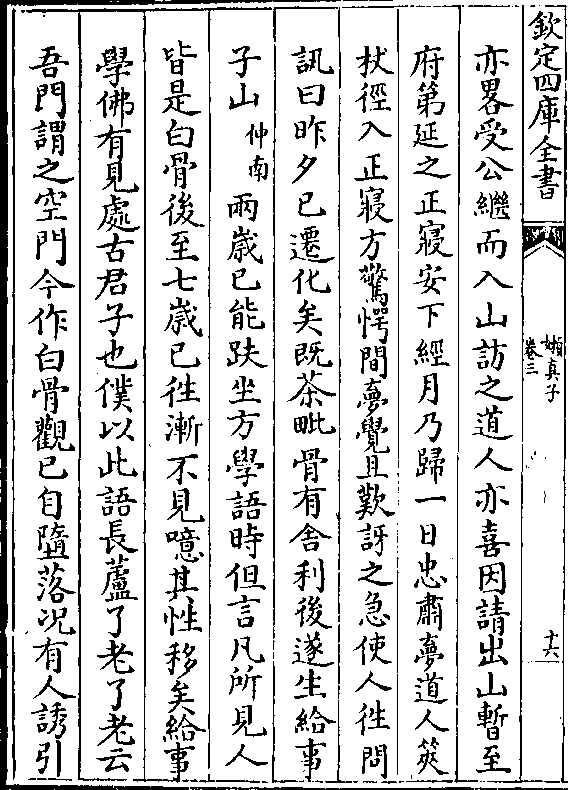 欽定四庫全書
嬾真子
卷三
十六
亦畧受公繼而入山訪之道人亦喜因請出山暫至
府第延之正寢安下經月乃歸一日忠肅夢道人䇿
杖徑入正寢方驚愕間夢覺且歎訝之急使人徃問
訊曰昨夕已遷化矣既茶毗骨有舍利後遂生給事
子山仲南兩歲已能趺坐方學語時但言凡所見人
皆是白骨後至七歲已徃漸不見噫其性移矣給事
學佛有見處古君子也僕以此語長蘆了老了老云
吾門謂之空門今作白骨觀已自墮落况有人誘引